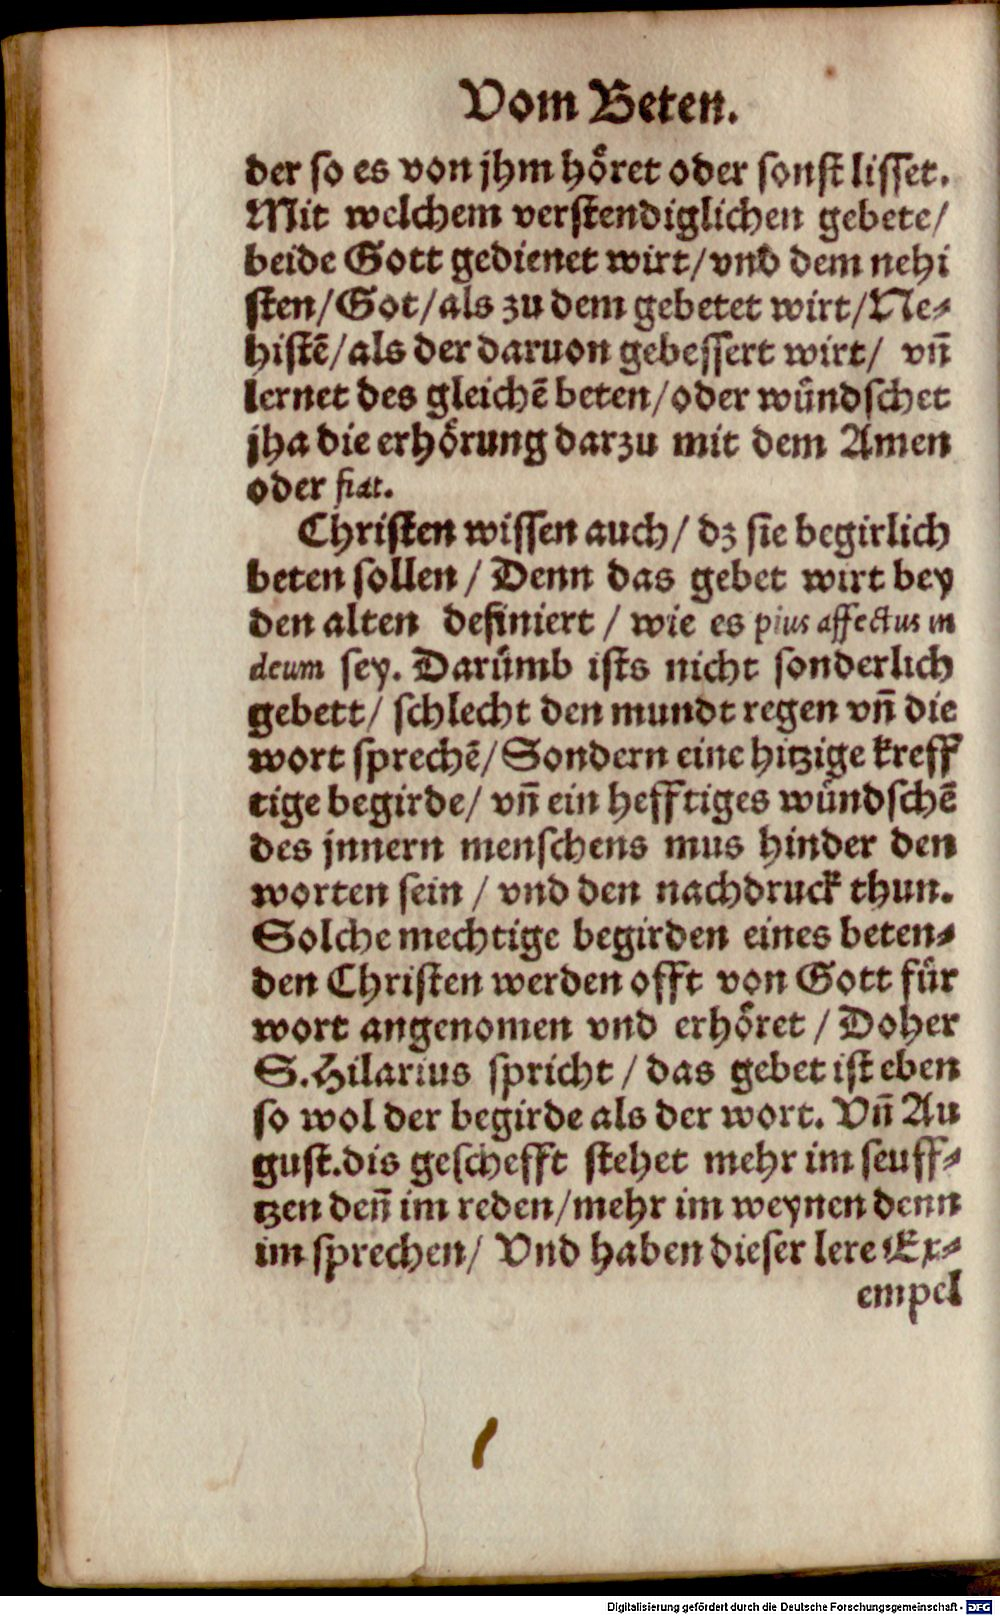 Vom Beten.
der so es von jhm höret oder sonst lisset.
Mit welchem verstendiglichen gebete/
beide Gott gedienet wirt/vnd dem nehi
sten/Got/als zu dem gebetet wirt/Ne-
histē/als der daruon gebessert wirt/ vn̄
lernet des gleichē beten/oder wündschet
jha die erhörung darzu mit dem Amen
oder fiat.
Christen wissen auch/ dz sie begirlich
beten sollen / Denn das gebet wirt bey
den alten definiert / wie es pius affectus in
deum sey. Darümb ists nicht sonderlich
gebett/ schlecht den mundt regen vn̄ die
wort sprechē/Sondern eine hitzige kreff
tige begirde/ vn̄ ein hefftiges wündschē
des jnnern menschens mus hinder den
worten sein / vnd den nachdruck thun.
Solche mechtige begirden eines beten-
den Christen werden offt von Gott für
wort angenomen vnd erhöret / Doher
S.Hilarius spricht / das gebet ist eben
so wol der begirde als der wort. Vn̄ Au
gust.dis geschefft stehet mehr im seuff-
tzen den̄ im reden/mehr im weynen denn
im sprechen/ Vnd haben dieser lere Ex-
empel
Digitalisierung gefördert durch die Deutsche Forschungsgemeinschaft - DFG